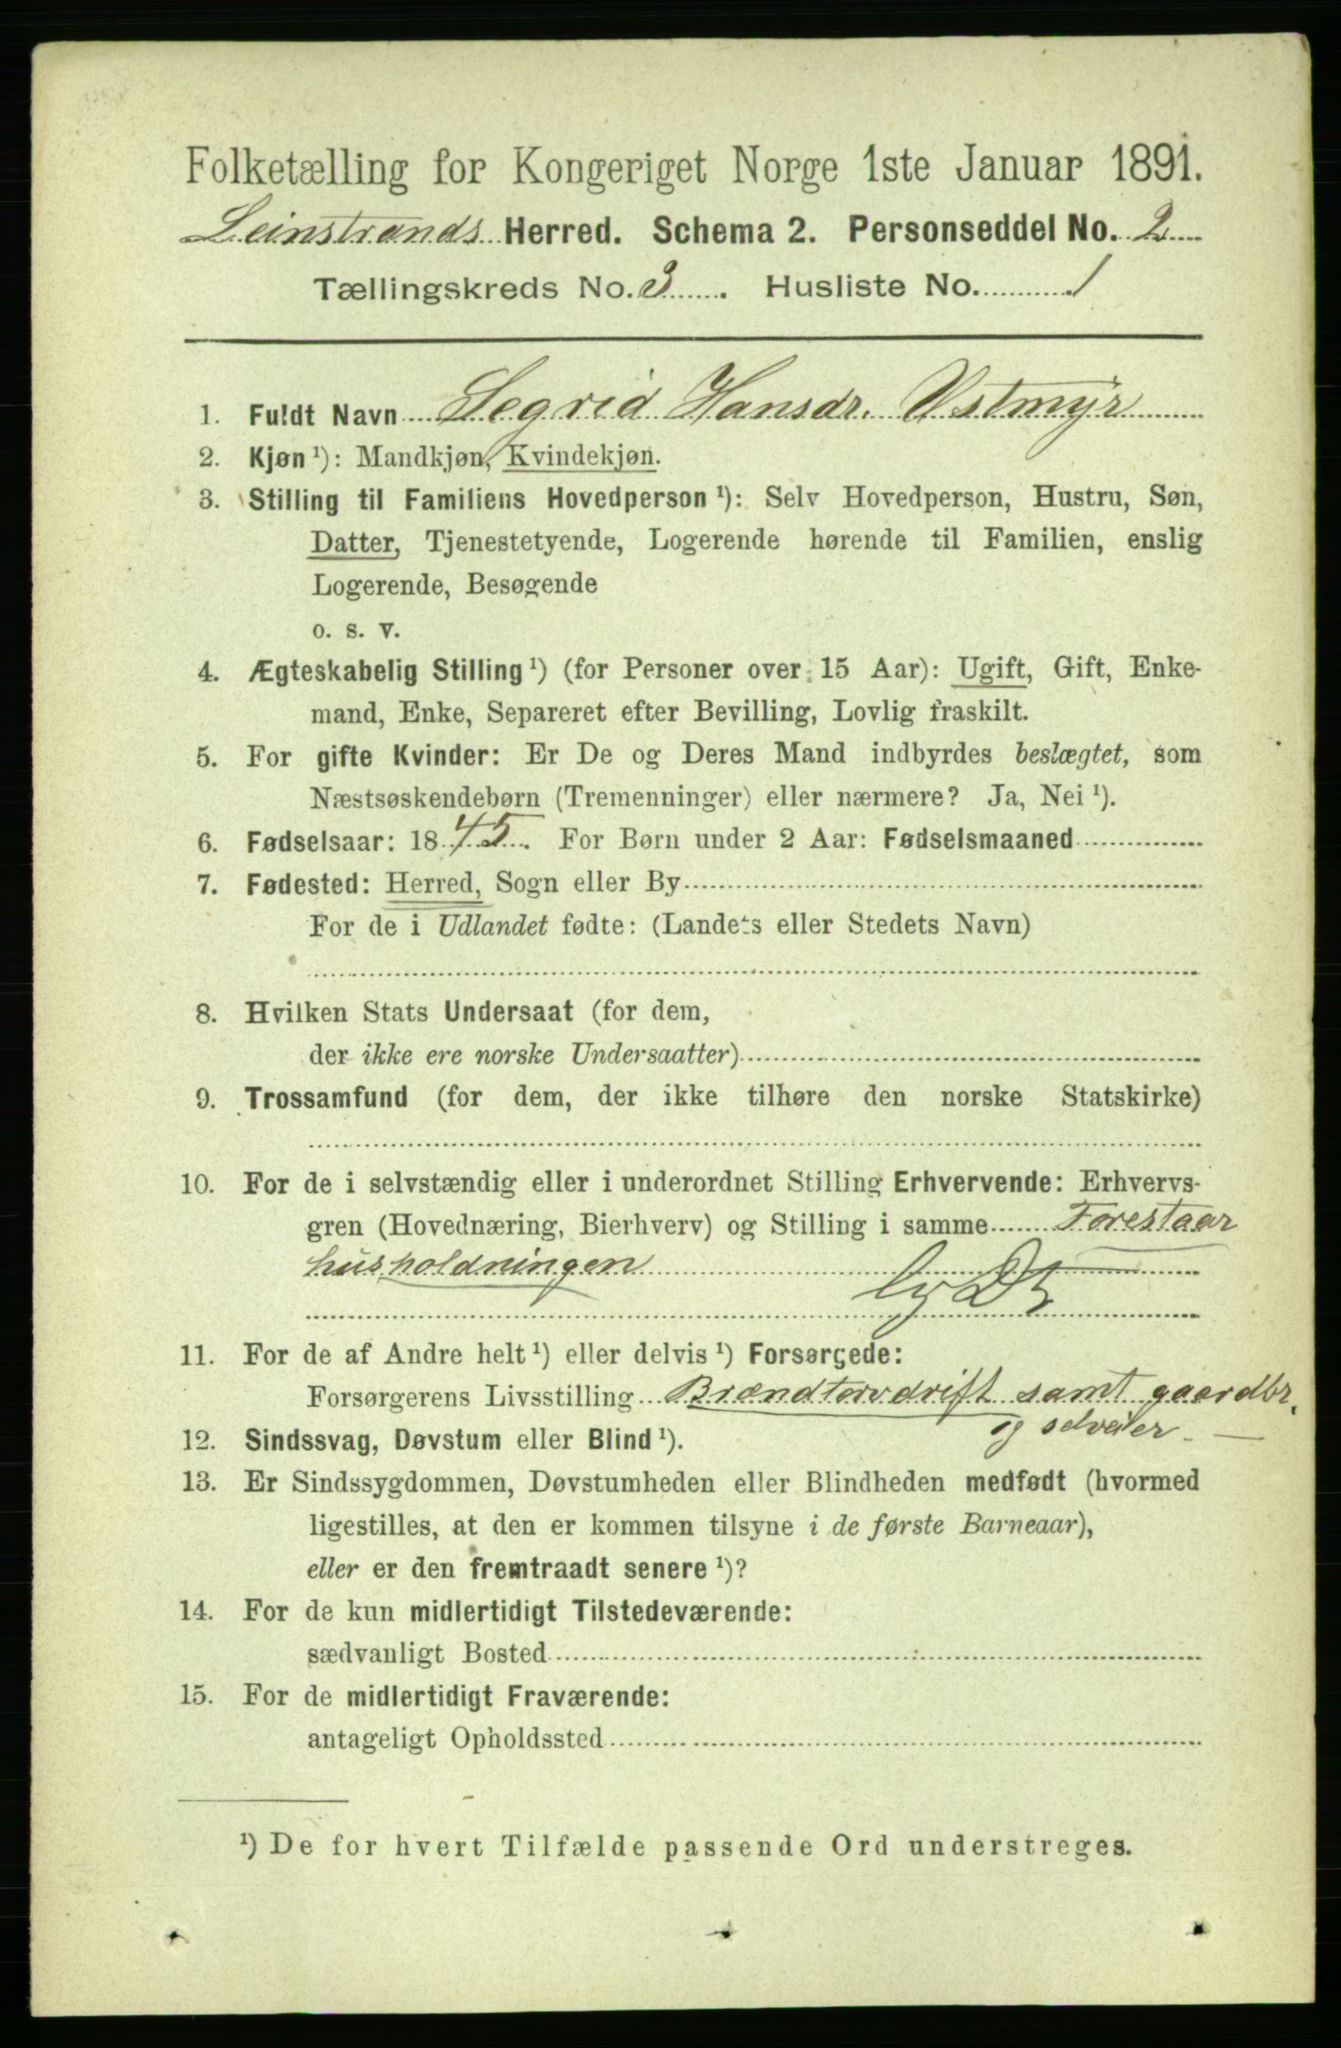 Folketælling for Kongeriget Norge 1ste Januar 1891.
Leinstrands Herred. Schema 2. Personseddel No. 2
Tællingskreds No. 3. Husliste No. 1
1. Fuldt Navn Segrid Hansdr. Ustmyr
2. Kjøn ¹): Mandkjøn, Kvindekjøn.
3. Stilling til Familiens Hovedperson ¹): Selv Hovedperson, Hustru, Søn,
Datter, Tjenestetyende, Logerende hørende til Familien, enslig
Logerende, Besøgende
o. s. v.
4. Ægteskabelig Stilling ¹) (for Personer over 15 Aar): Ugift, Gift, Enke-
mand, Enke, Separeret efter Bevilling, Lovlig fraskilt.
5. For gifte Kvinder: Er De og Deres Mand indbyrdes beslægtet, som
Næstsøskendebørn (Tremenninger) eller nærmere? Ja, Nei ¹).
6. Fødselsaar: 1845. For Børn under 2 Aar: Fødselsmaaned
7. Fødested: Herred, Sogn eller By
For de i Udlandet fødte: (Landets eller Stedets Navn)
8. Hvilken Stats Undersaat (for dem,
der ikke ere norske Undersaatter)
9. Trossamfund (for dem, der ikke tilhøre den norske Statskirke)
10. For de i selvstændig eller i underordnet Stilling Erhvervende: Erhvervs-
gren (Hovednæring, Bierhverv) og Stilling i samme Forestaar
husholdningen
11. For de af Andre helt ¹) eller delvis ¹) Forsørgede:
Forsørgerens Livsstilling Brændtorvdrift samt gaardbr.
og selveier
12. Sindssvag, Døvstum eller Blind ¹).
13. Er Sindssygdommen, Døvstumheden eller Blindheden medfødt (hvormed
ligestilles, at den er kommen tilsyne i de første Barneaar),
eller er den fremtraadt senere ¹)?
14. For de kun midlertidigt Tilstedeværende:
sædvanligt Bosted
15. For de midlertidigt Fraværende:
antageligt Opholdssted
¹) De for hvert Tilfælde passende Ord understreges.